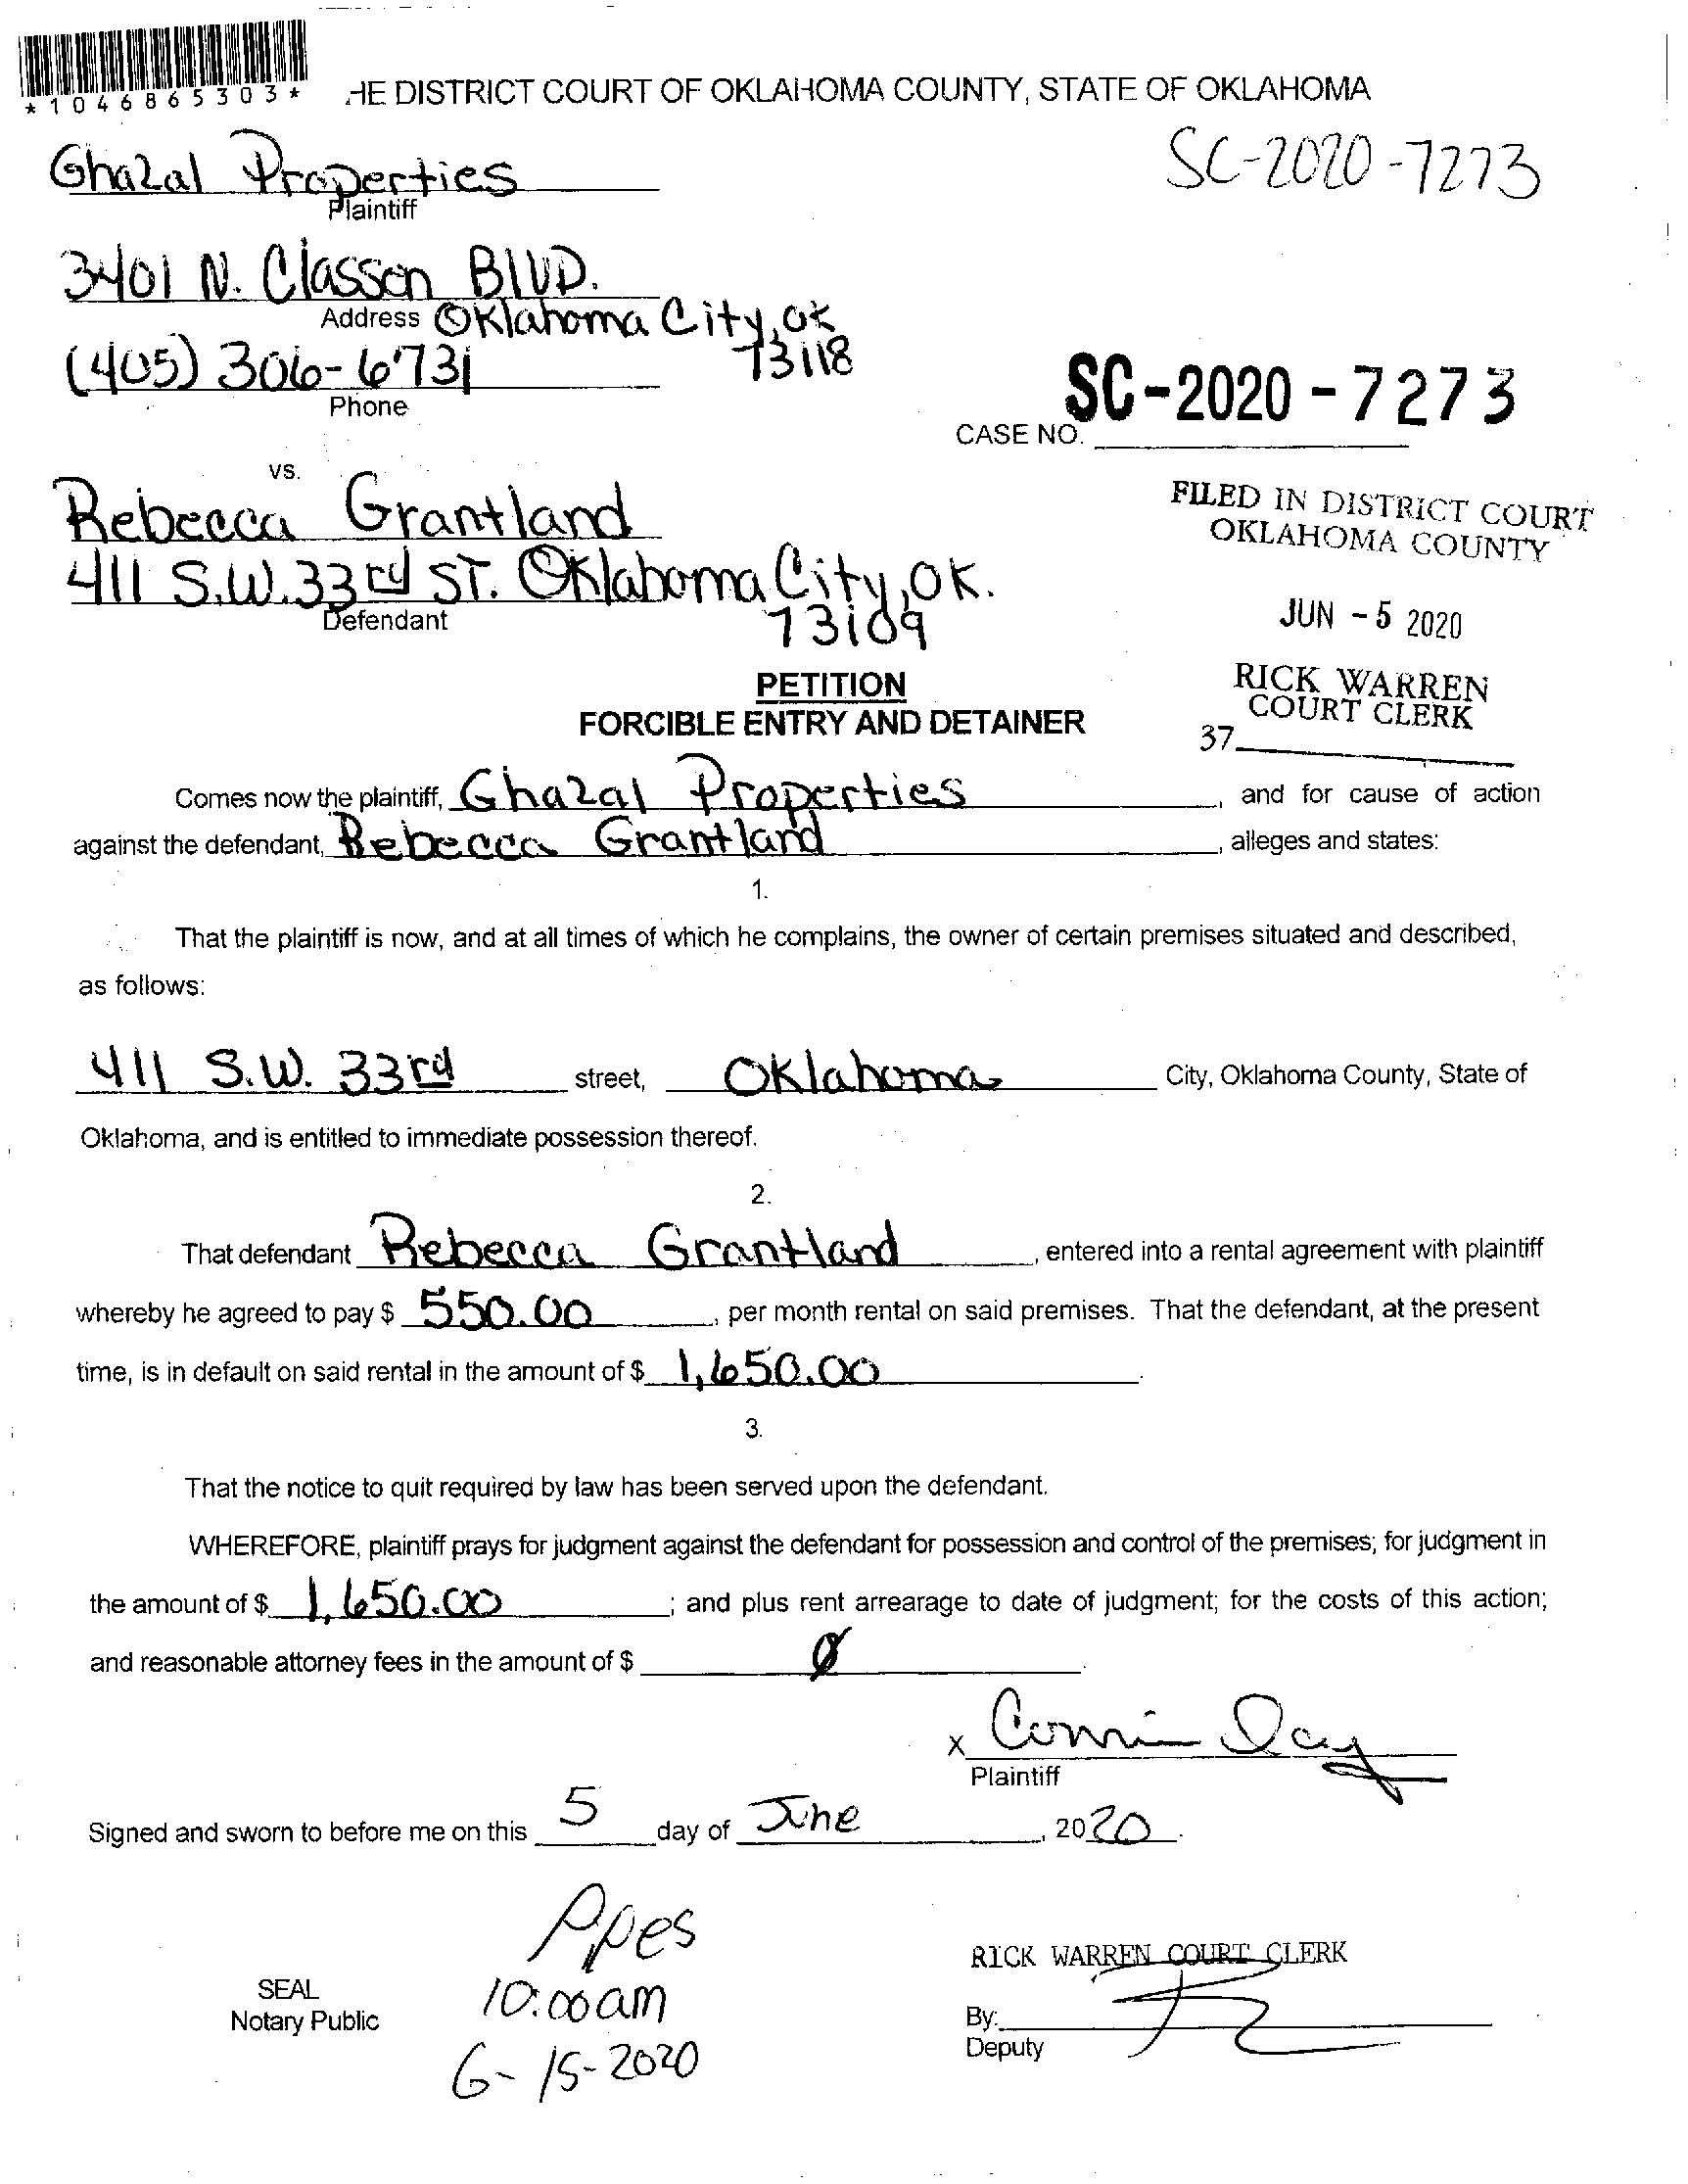 *1046865303*
HE DISTRICT COURT OF OKLAHOMA COUNTY, STATE OF OKLAHOMA
Ghazal Properties
Plaintiff
SC-2020-7273
3401 N. Classen BLVD.
Address Oklahoma City, OK
73118
(405) 306-6731
Phone
SC-2020-7273
CASE NO.
vs.
Rebecca Grantland
411 S.W. 33rd ST. Oklahoma City, OK.
73109
Defendant
FILED IN DISTRICT COURT
OKLAHOMA COUNTY
JUN -5 2020
RICK WARREN
COURT CLERK
37
PETITION
FORCIBLE ENTRY AND DETAINER
Comes now the plaintiff, Ghazal Properties, and for cause of action
against the defendant, Rebecca Grantland, alleges and states:
1.
That the plaintiff is now, and at all times of which he complains, the owner of certain premises situated and described,
as follows:
411 S.W. 33rd street, Oklahoma City, Oklahoma County, State of
Oklahoma, and is entitled to immediate possession thereof.
2.
That defendant Rebecca Grantland, entered into a rental agreement with plaintiff
whereby he agreed to pay $ 550.00, per month rental on said premises. That the defendant, at the present
time, is in default on said rental in the amount of $ 1,650.00.
3.
That the notice to quit required by law has been served upon the defendant.
WHEREFORE, plaintiff prays for judgment against the defendant for possession and control of the premises; for judgment in
the amount of $ 1,650.00; and plus rent arrearage to date of judgment; for the costs of this action;
and reasonable attorney fees in the amount of $ 0.
x Connie Day
Plaintiff
Signed and sworn to before me on this 5 day of June, 2020.
PPes
10:00am
6-15-2020
SEAL
Notary Public
RICK WARREN COURT CLERK
By:
Deputy